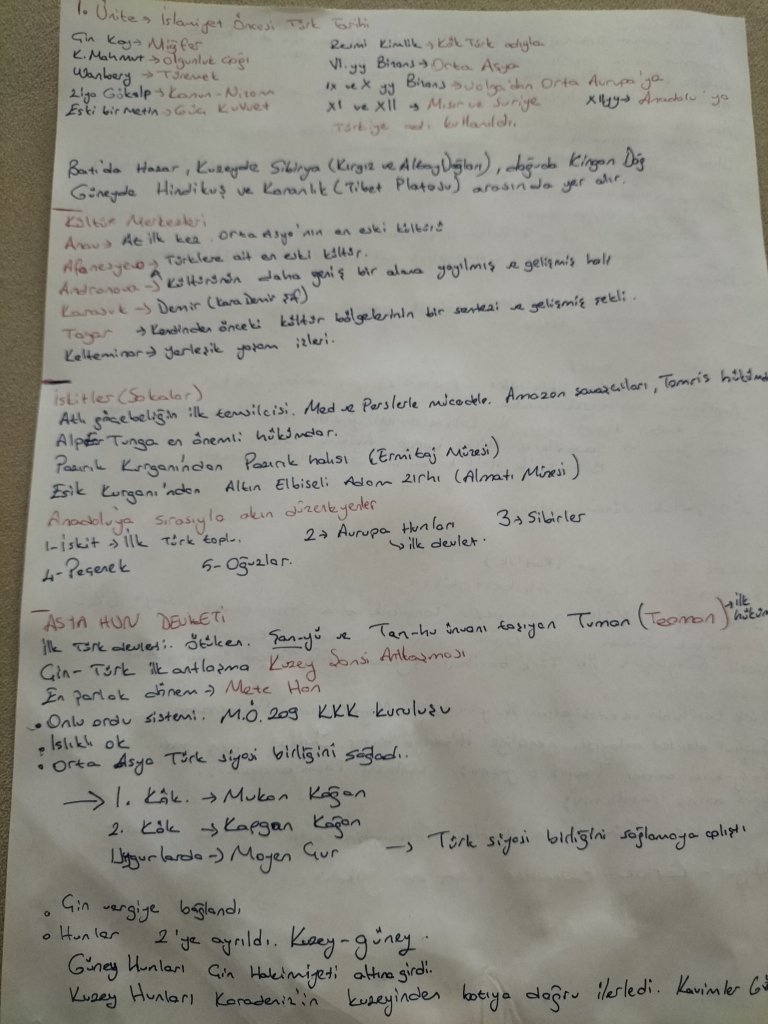 1. Ünite → İslamiyet Öncesi Türk Tarihi
Çin Kay → Miğfer
K. Mahmut → Olgunluk Çağı
Wanbery → Türemek
Ziya Gökalp → Kanun-Nizam
Eski bir metin → Güç Kuvvet
Resmi Kimlik → Kök Türk adıyla
VI. yy Bizans → Orta Asya
IX ve X yy Bizans → Volga'dan Orta Avrupa'ya
XI ve XII → Mısır ve Suriye XII yy → Anadolu'ya
Türkiye adı kullanıldı.
Batı'da Hazar, Kuzeyde Sibirya (Kırgız ve Altay Dağları), doğuda Kingan Dağ
Güneyde Hindikuş ve Karanlık (Tibet Platosu) arasında yer alır.
Kültür Merkezleri
Anav → At ilk kez. Orta Asya'nın en eski kültürü
Afanesyevo → Türklere ait en eski kültür.
Andronova → A kültürünün daha geniş bir alana yayılmış ve gelişmiş hali
Karasuk → Demir (Kara Demir Şf)
Tagar → Kendinden önceki kültür bölgelerinin bir sentezi ve gelişmiş şekli.
Kelteminar → yerleşik yaşam izleri.
İskitler (Sakalar)
Atlı göçebeliğin ilk temsilcisi. Med ve Perslerle mücadele. Amazon savaşçıları, Tomris hükümd
Alp Er Tunga en önemli hükümdar.
Pazırık Kurganı'ndan Pazırık halısı (Ermitaj Müzesi)
Esik Kurganı'ndan Altın Elbiseli Adam zırhı (Almatı Müzesi)
Anadolu'ya sırasıyla akın düzenleyenler
1-İskit → İlk Türk toplu. 2→ Avrupa Hunları 3→ Sibirler
↳ ilk devlet.
4-Peçenek 5-Oğuzlar.
ASYA HUN DEVLETİ
İlk Türk devleti. Ötüken. Şan-yü ve Tan-hu ünvanı taşıyan Tuman (Teoman) → ilk hüküm
Çin-Türk ilk antlaşma Kuzey Şansi Antlaşması
En parlak dönem → Mete Han
• Onlu ordu sistemi. M.Ö. 209 KKK kuruluşu
• Islıklı ok
• Orta Asya Türk siyasi birliğini sağladı.
→ 1. Kök. → Mukan Kağan
2. Kök → Kapgan Kağan
Uygurlarda → Moyen Çur → Türk siyasi birliğini sağlamaya çalıştı
• Çin vergiye bağlandı
• Hunlar 2'ye ayrıldı. Kuzey-güney.
Güney Hunları Çin Hakimiyeti altına girdi.
Kuzey Hunları Karadeniz'in kuzeyinden batıya doğru ilerledi. Kavimler Gö